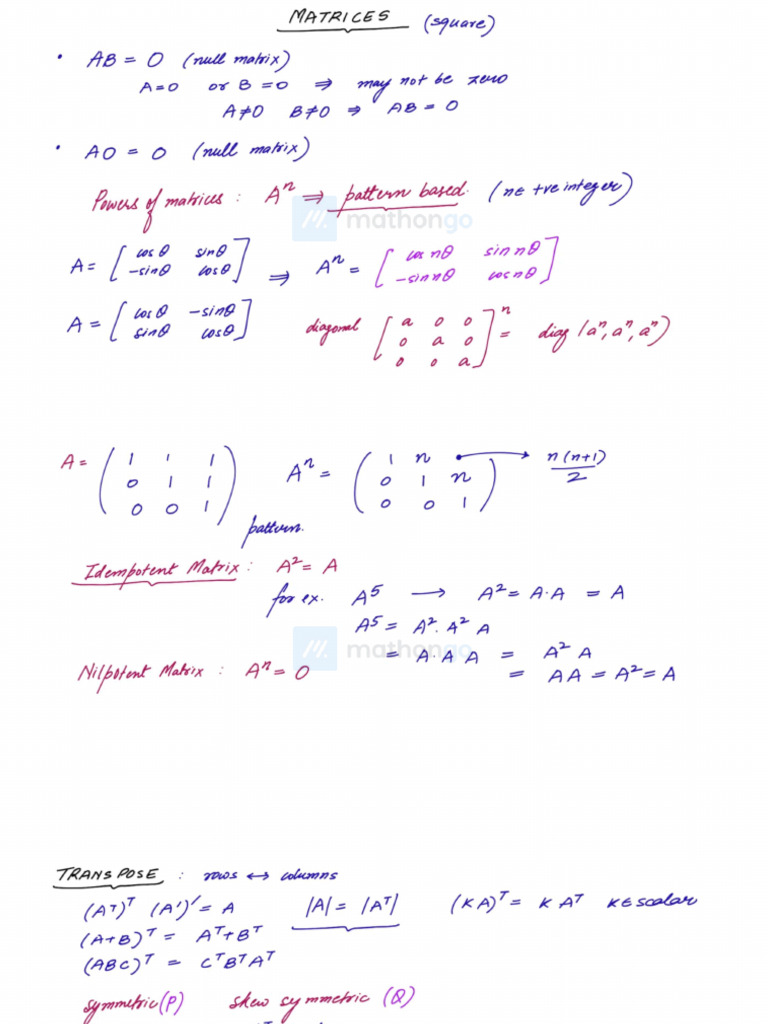 MATRICES (square)
• AB = O (null matrix)
A=0 or B=0 ⇒ may not be zero
A≠0 B≠0 ⇒ AB = 0
• AO = O (null matrix)
Powers of matrices : Aⁿ ⇒ pattern based. (n∈ +ve integer)
mathongo
A = [cosθ sinθ; -sinθ cosθ] ⇒ Aⁿ = [cos nθ sin nθ; -sin nθ cos nθ]
A = [cosθ -sinθ; sinθ cosθ] diagonal [a 0 0; 0 a 0; 0 0 a]ⁿ = diag (aⁿ, aⁿ, aⁿ)
A = (1 1 1; 0 1 1; 0 0 1) Aⁿ = (1 n • → n(n+1)/2; 0 1 n; 0 0 1)
pattern.
Idempotent Matrix : A² = A
for ex. A⁵ → A² = A·A = A
A⁵ = A². A² A
mathongo
= A·A A = A² A
Nilpotent Matrix : Aⁿ = O
= AA = A² = A
TRANSPOSE : rows ↔ columns
(Aᵀ)ᵀ (A')' = A |A| = |Aᵀ| (KA)ᵀ = K Aᵀ K∈scalar
(A+B)ᵀ = Aᵀ+Bᵀ
(ABC)ᵀ = CᵀBᵀAᵀ
symmetric (P) skew symmetric (Q)